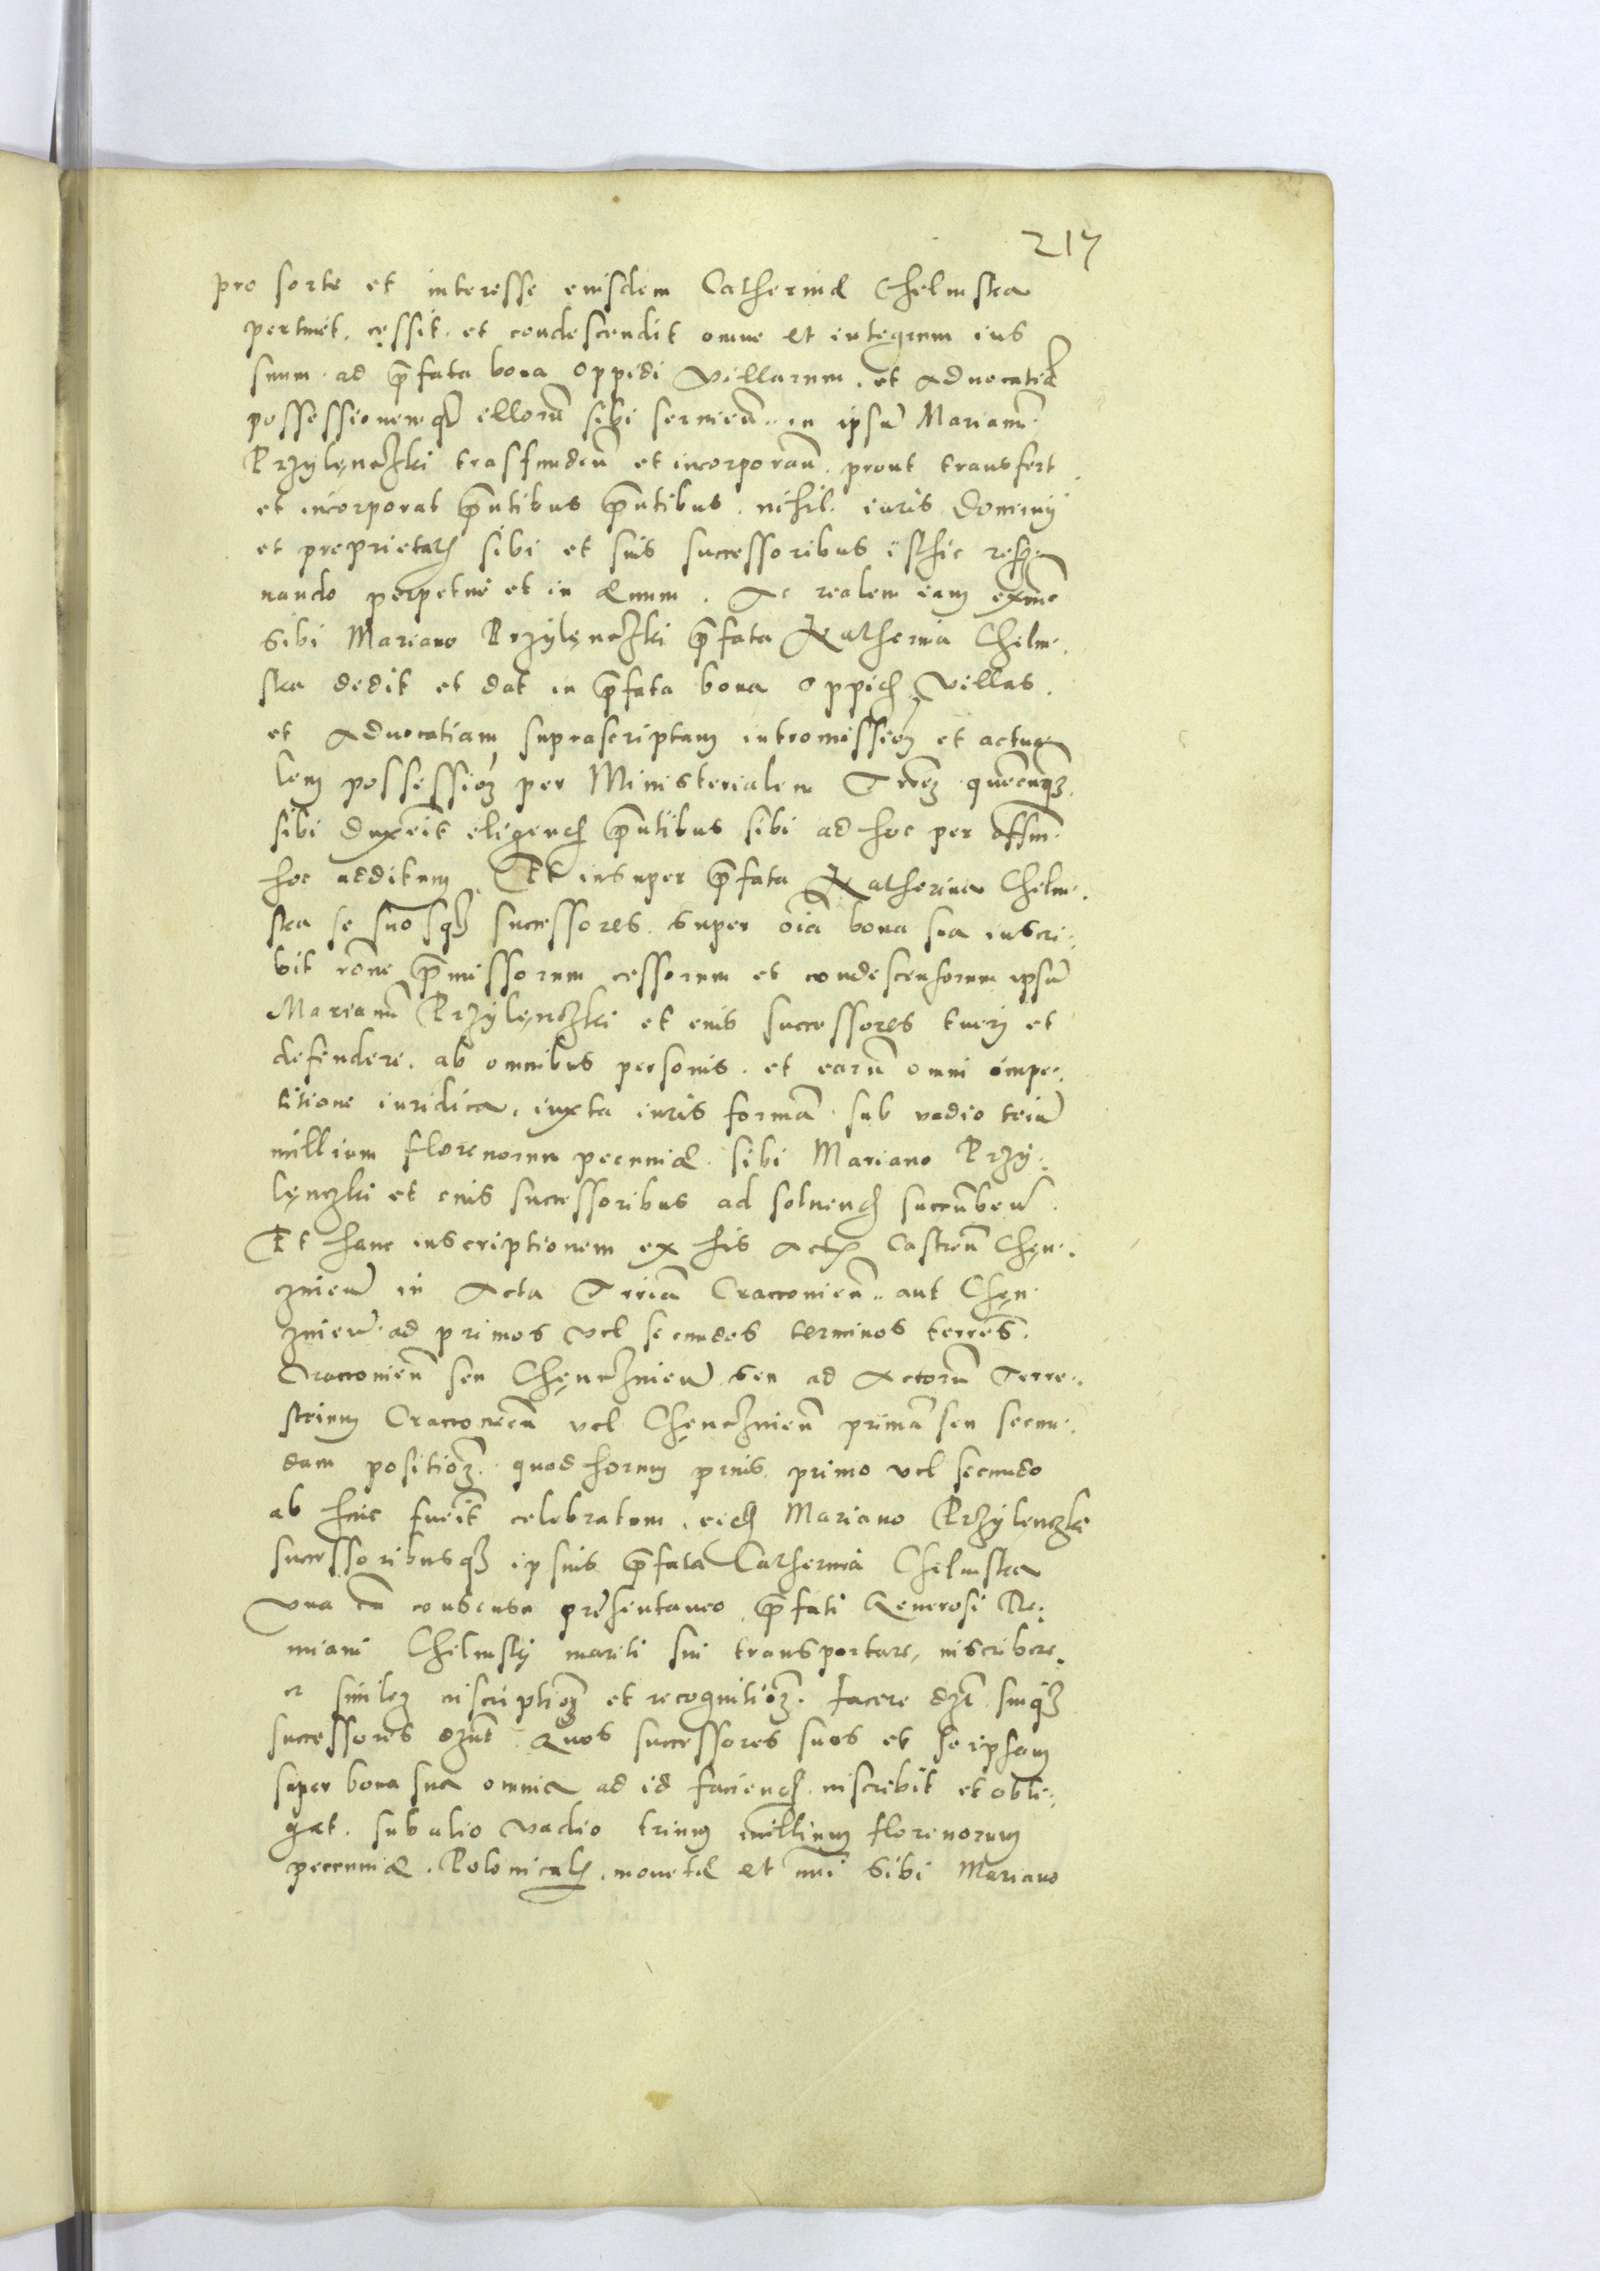 217
pro sorte et interesse eiusdem Catherinæ Chelmska
pertinet. cessit. et condescendit omne et integrum ius
suum. ad p̄fata bona oppidi Villarum. et Aduocatiæ
possessionemq3 illorū sibi seruieñ. in ipsū Marianū
Przylęnczki trasfundeñ et incorporañ. prout transfert
et incorporat p̄ntibus p̄ntibus. nihil. iuris Dominij
et proprietatis sibi et suis successoribus isthic reser
nando perpetue et in æuum. Ac realem eam
sibi Mariano Przylęnczki p̄fata Katherina Chelm.
ska dedit et dat in p̄fata bona oppid Villas.
et Aduocatiam suprascriptam intromissioē et actua
lem possessioē per Ministerialem Trrē quēcunq3
sibi duxerit eligend p̄ntibus sibi ad hoc per offm̄
hoc additum. Et insuper p̄fata Katherina Chelm.
ska se suosq3 successores. super oīa bona sua inscri.
bit rōne p̄missorum cessorum et condescensorum ipsū
Marianū Przylęnczki et eius successores tueri et
defendere. ab omnibus personis. et earū omni impe.
titione iuridica. iuxta iuris formā. sub vadio triū
millium florenorum pecuniæ. sibi Mariano Przy.
lęnczki et eius successoribus ad soluend succūbeñ.
Et hanc inscriptionem ex his Actis Castreñ Chęn.
znieñ in Acta Trriā Cracouieñ. aut Chęn
znieñ. ad primos vel secundos terminos terrēs.
Cracouieñ seu Chęncznieñ seu ad Actorū Terre.
strium Cracouieñ vel Chęncznieñ primā seu secun.
dam positioē. quod horum prius primo vel secundo
ab hinc fuerit celebratum. eid Mariano Przylenczki
successoribusq3 ipsius p̄fata Catherina Chelmska
Vna cū consensu presentaneo p̄fati Generosi Re.
miani Chelmskij mariti sui transportare, inscribere.
et similē inscriptioē et recognitioē. facere dz̄t suiq3
successores dz̄nt Quos successores suos et seipsam
super bona sua omnia ad id faciend. inscribit et obli.
gat. sub alio vadio trium millium florenorum
pecuniæ. Polonicalis. monetæ et nūi sibi Mariano